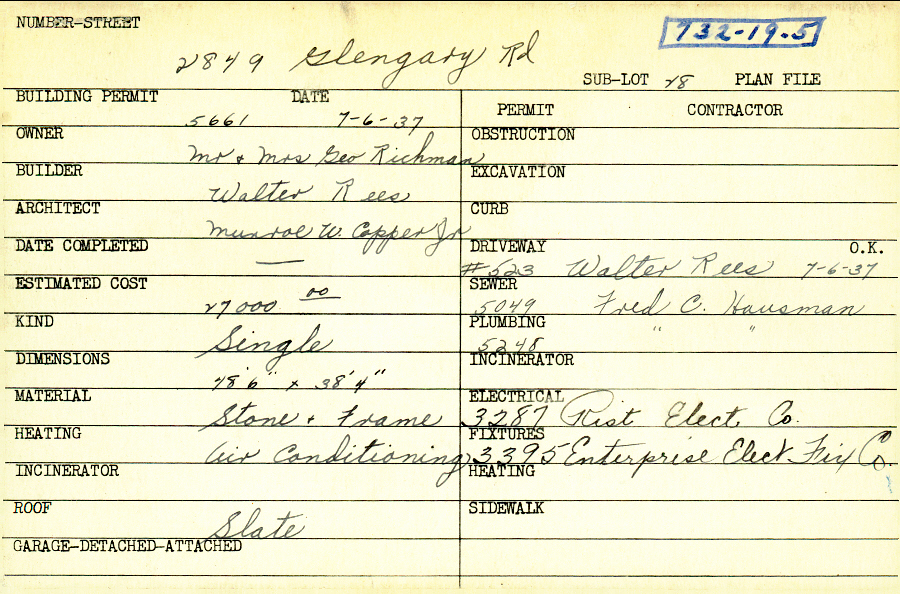 NUMBER-STREET
732-19-5
2849 Glengary Rd
SUB-LOT 28 PLAN FILE
BUILDING PERMIT DATE
5661 7-6-37
PERMIT CONTRACTOR
OWNER
Mr & Mrs Geo Richman
OBSTRUCTION
BUILDER
Walter Rees
EXCAVATION
ARCHITECT
Munroe W. Copper Jr
CURB
DATE COMPLETED
—
DRIVEWAY O.K.
#523 Walter Rees 7-6-37
ESTIMATED COST
27000 00
SEWER
5049 Fred C. Hausman
KIND
Single
PLUMBING
5248 " "
DIMENSIONS
78'6" x 38'4"
INCINERATOR
MATERIAL
Stone & Frame
ELECTRICAL
3287 Rist Elect. Co.
HEATING
Air Conditioning
FIXTURES
3395 Enterprise Elect. Fix Co.
INCINERATOR
HEATING
ROOF
Slate
SIDEWALK
GARAGE-DETACHED-ATTACHED